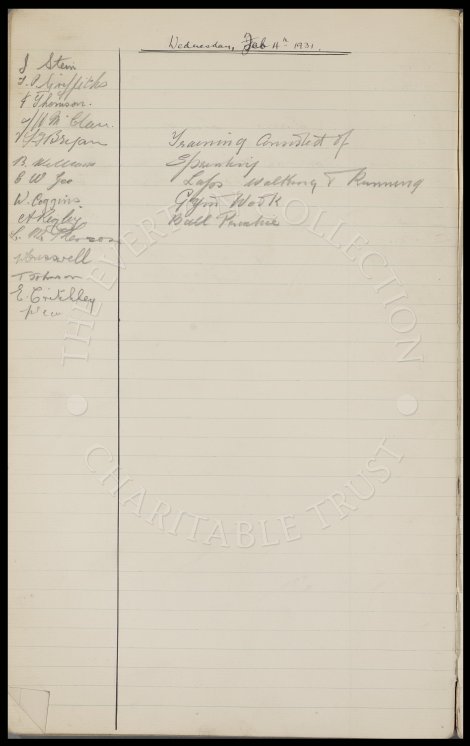 Wednesday, Feb 4th 1931.
J Stein
T. P. Griffiths
F Thomson.
J H McClure
B. Williams
C W Gee
W. Coggins
A Rigby
L. McPherson
Cresswell
T Johnson
E. Critchley
Training Consisted of
Sprinting
Laps walking & Running
Gym Work
Ball Practice
THE EVERTON COLLECTION
CHARITABLE TRUST